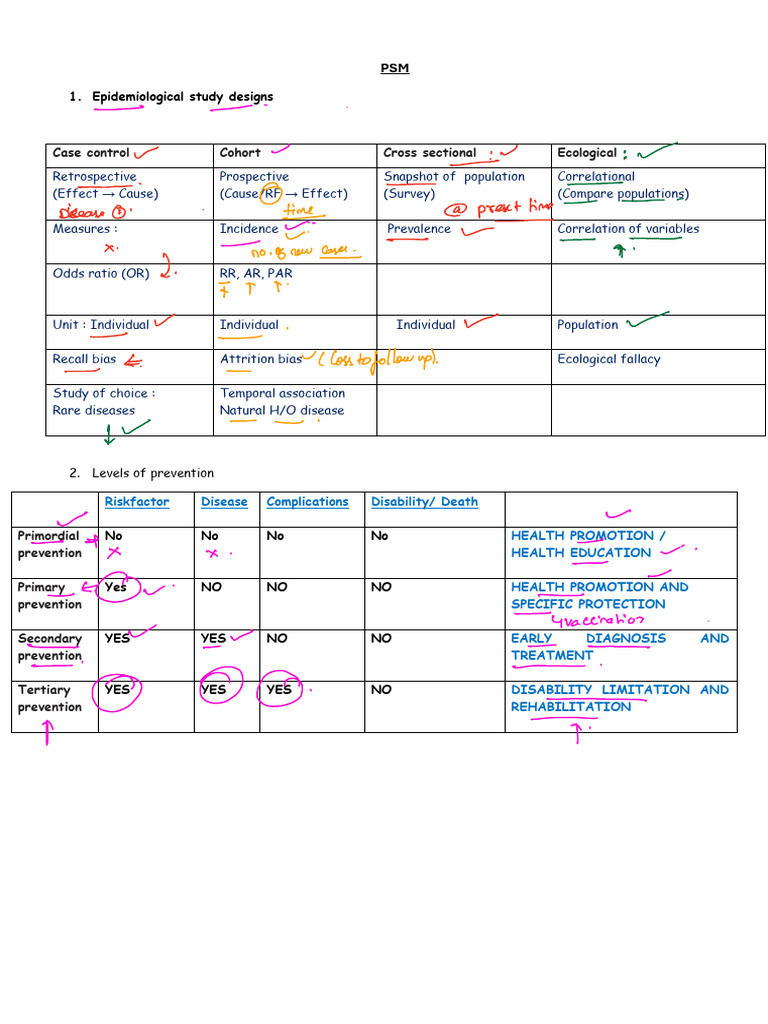 PSM
1. Epidemiological study designs
Case control
Cohort
Cross sectional :
Ecological :
Retrospective
(Effect → Cause)
Disease
Prospective
(Cause/RF → Effect)
time
Snapshot of population
(Survey)
@ present time
Correlational
(Compare populations)
Measures :
Incidence
no. of new cases.
Prevalence
Correlation of variables
Odds ratio (OR)
RR, AR, PAR
Unit : Individual
Individual
Individual
Population
Recall bias
Attrition bias
(Loss to follow up).
Ecological fallacy
Study of choice :
Rare diseases
Temporal association
Natural H/O disease
2. Levels of prevention
Riskfactor
Disease
Complications
Disability/ Death
Primordial
prevention
No
No
No
No
HEALTH PROMOTION /
HEALTH EDUCATION
Primary
prevention
Yes
NO
NO
NO
HEALTH PROMOTION AND
SPECIFIC PROTECTION
vaccination
Secondary
prevention
YES
YES
NO
NO
EARLY DIAGNOSIS AND
TREATMENT
Tertiary
prevention
YES
YES
YES
NO
DISABILITY LIMITATION AND
REHABILITATION